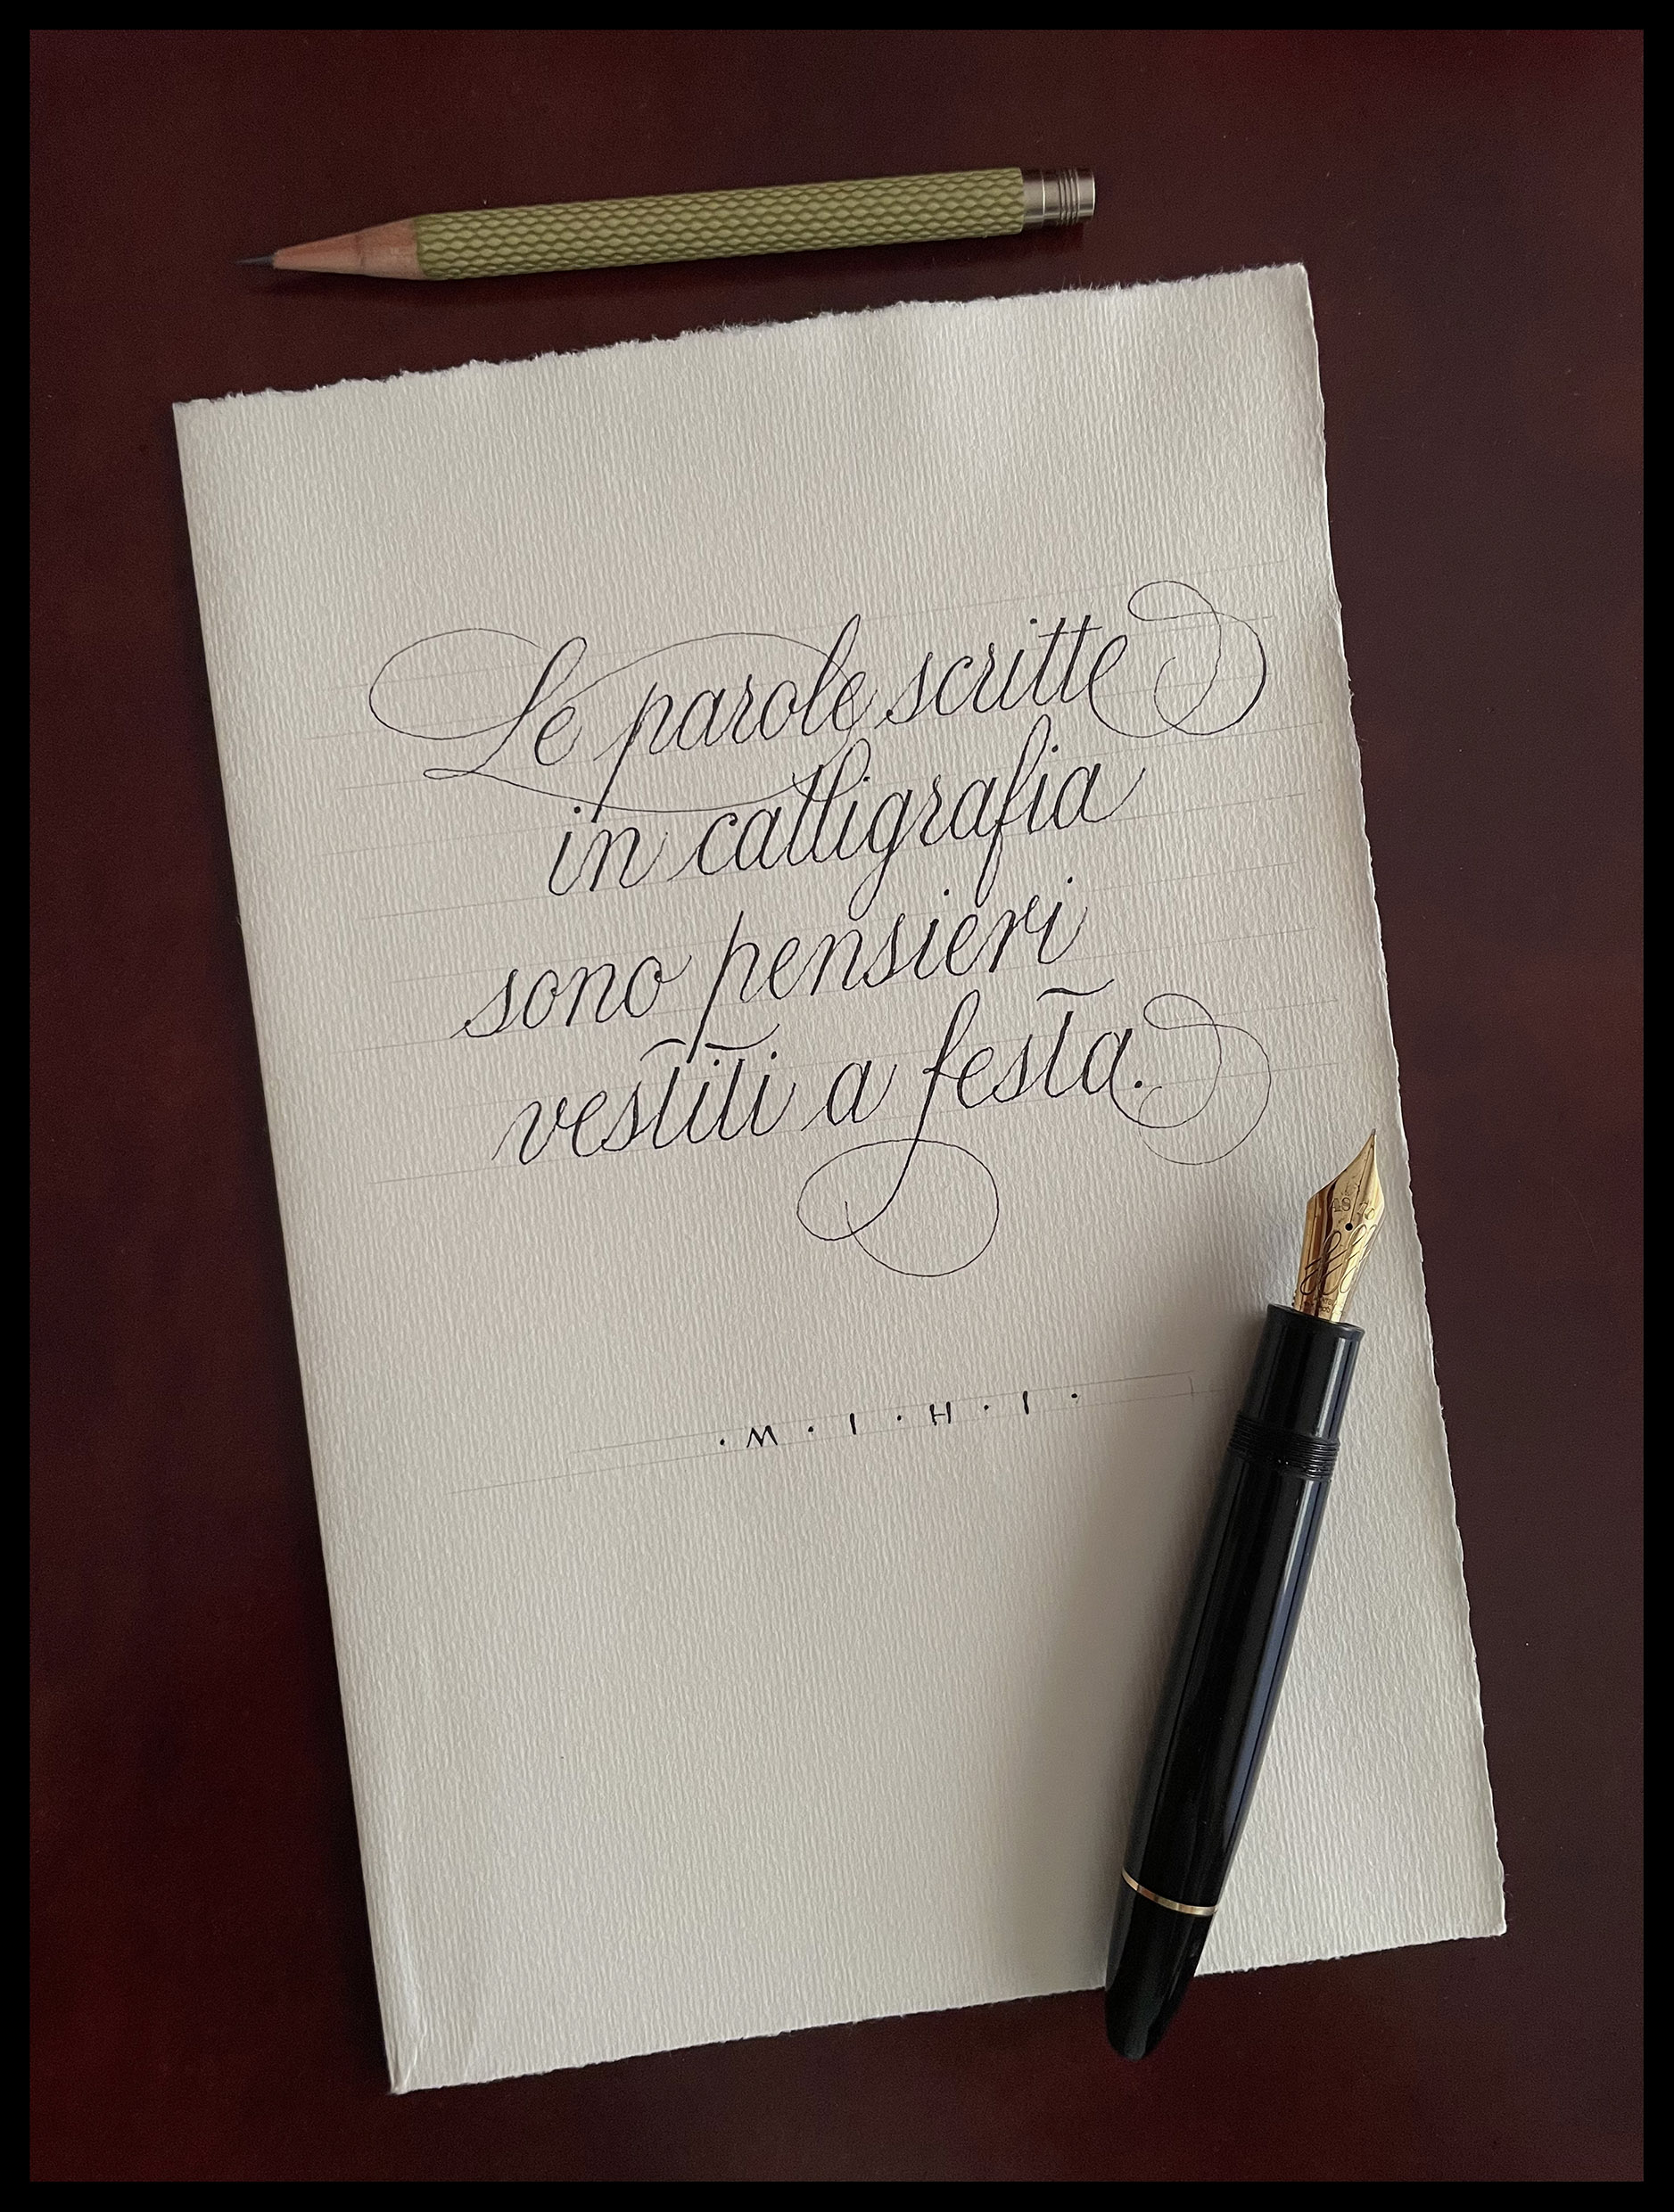 Le parole scritte
in calligrafia
sono pensieri
vestiti a festa.
· M · I · H · I ·